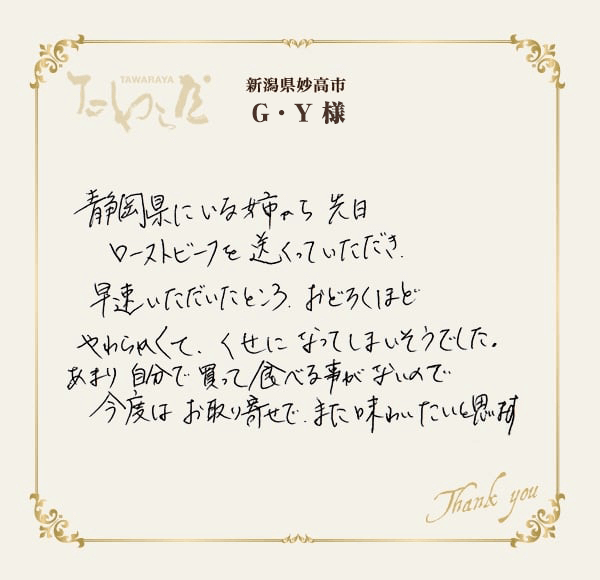 TAWARAYA
たわらや
新潟県妙高市
G・Y 様
静岡県にいる姉から 先日
ローストビーフを 送くっていただき、
早速いただいたところ、おどろくほど
やわらかくて、くせに なってしまいそうでした。
あまり 自分で 買って 食べる事が ないので
今度は お取り寄せで、また 味わいたいと思います
Thank you